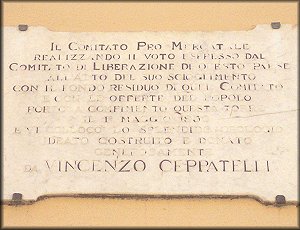 IL COMITATO PRO MERCATALE
REALIZZANDO IL VOTO ESPRESSO DAL
COMITATO DI LIBERAZIONE DI QUESTO PAESE
ALL'ATTO DEL SUO SCIOGLIMENTO
CON IL FONDO RESIDUO DI QUEL COMITATO
E CON LE OFFERTE DEL POPOLO
PORTO A COMPIMENTO QUESTA TORRE
IL MAGGIO
E VI COLLOCÒ LO SPLENDIDO OROLOGIO
IDEATO COSTRUITO E DONATO
GENEROSAMENTE
DA VINCENZO CEPPATELLI